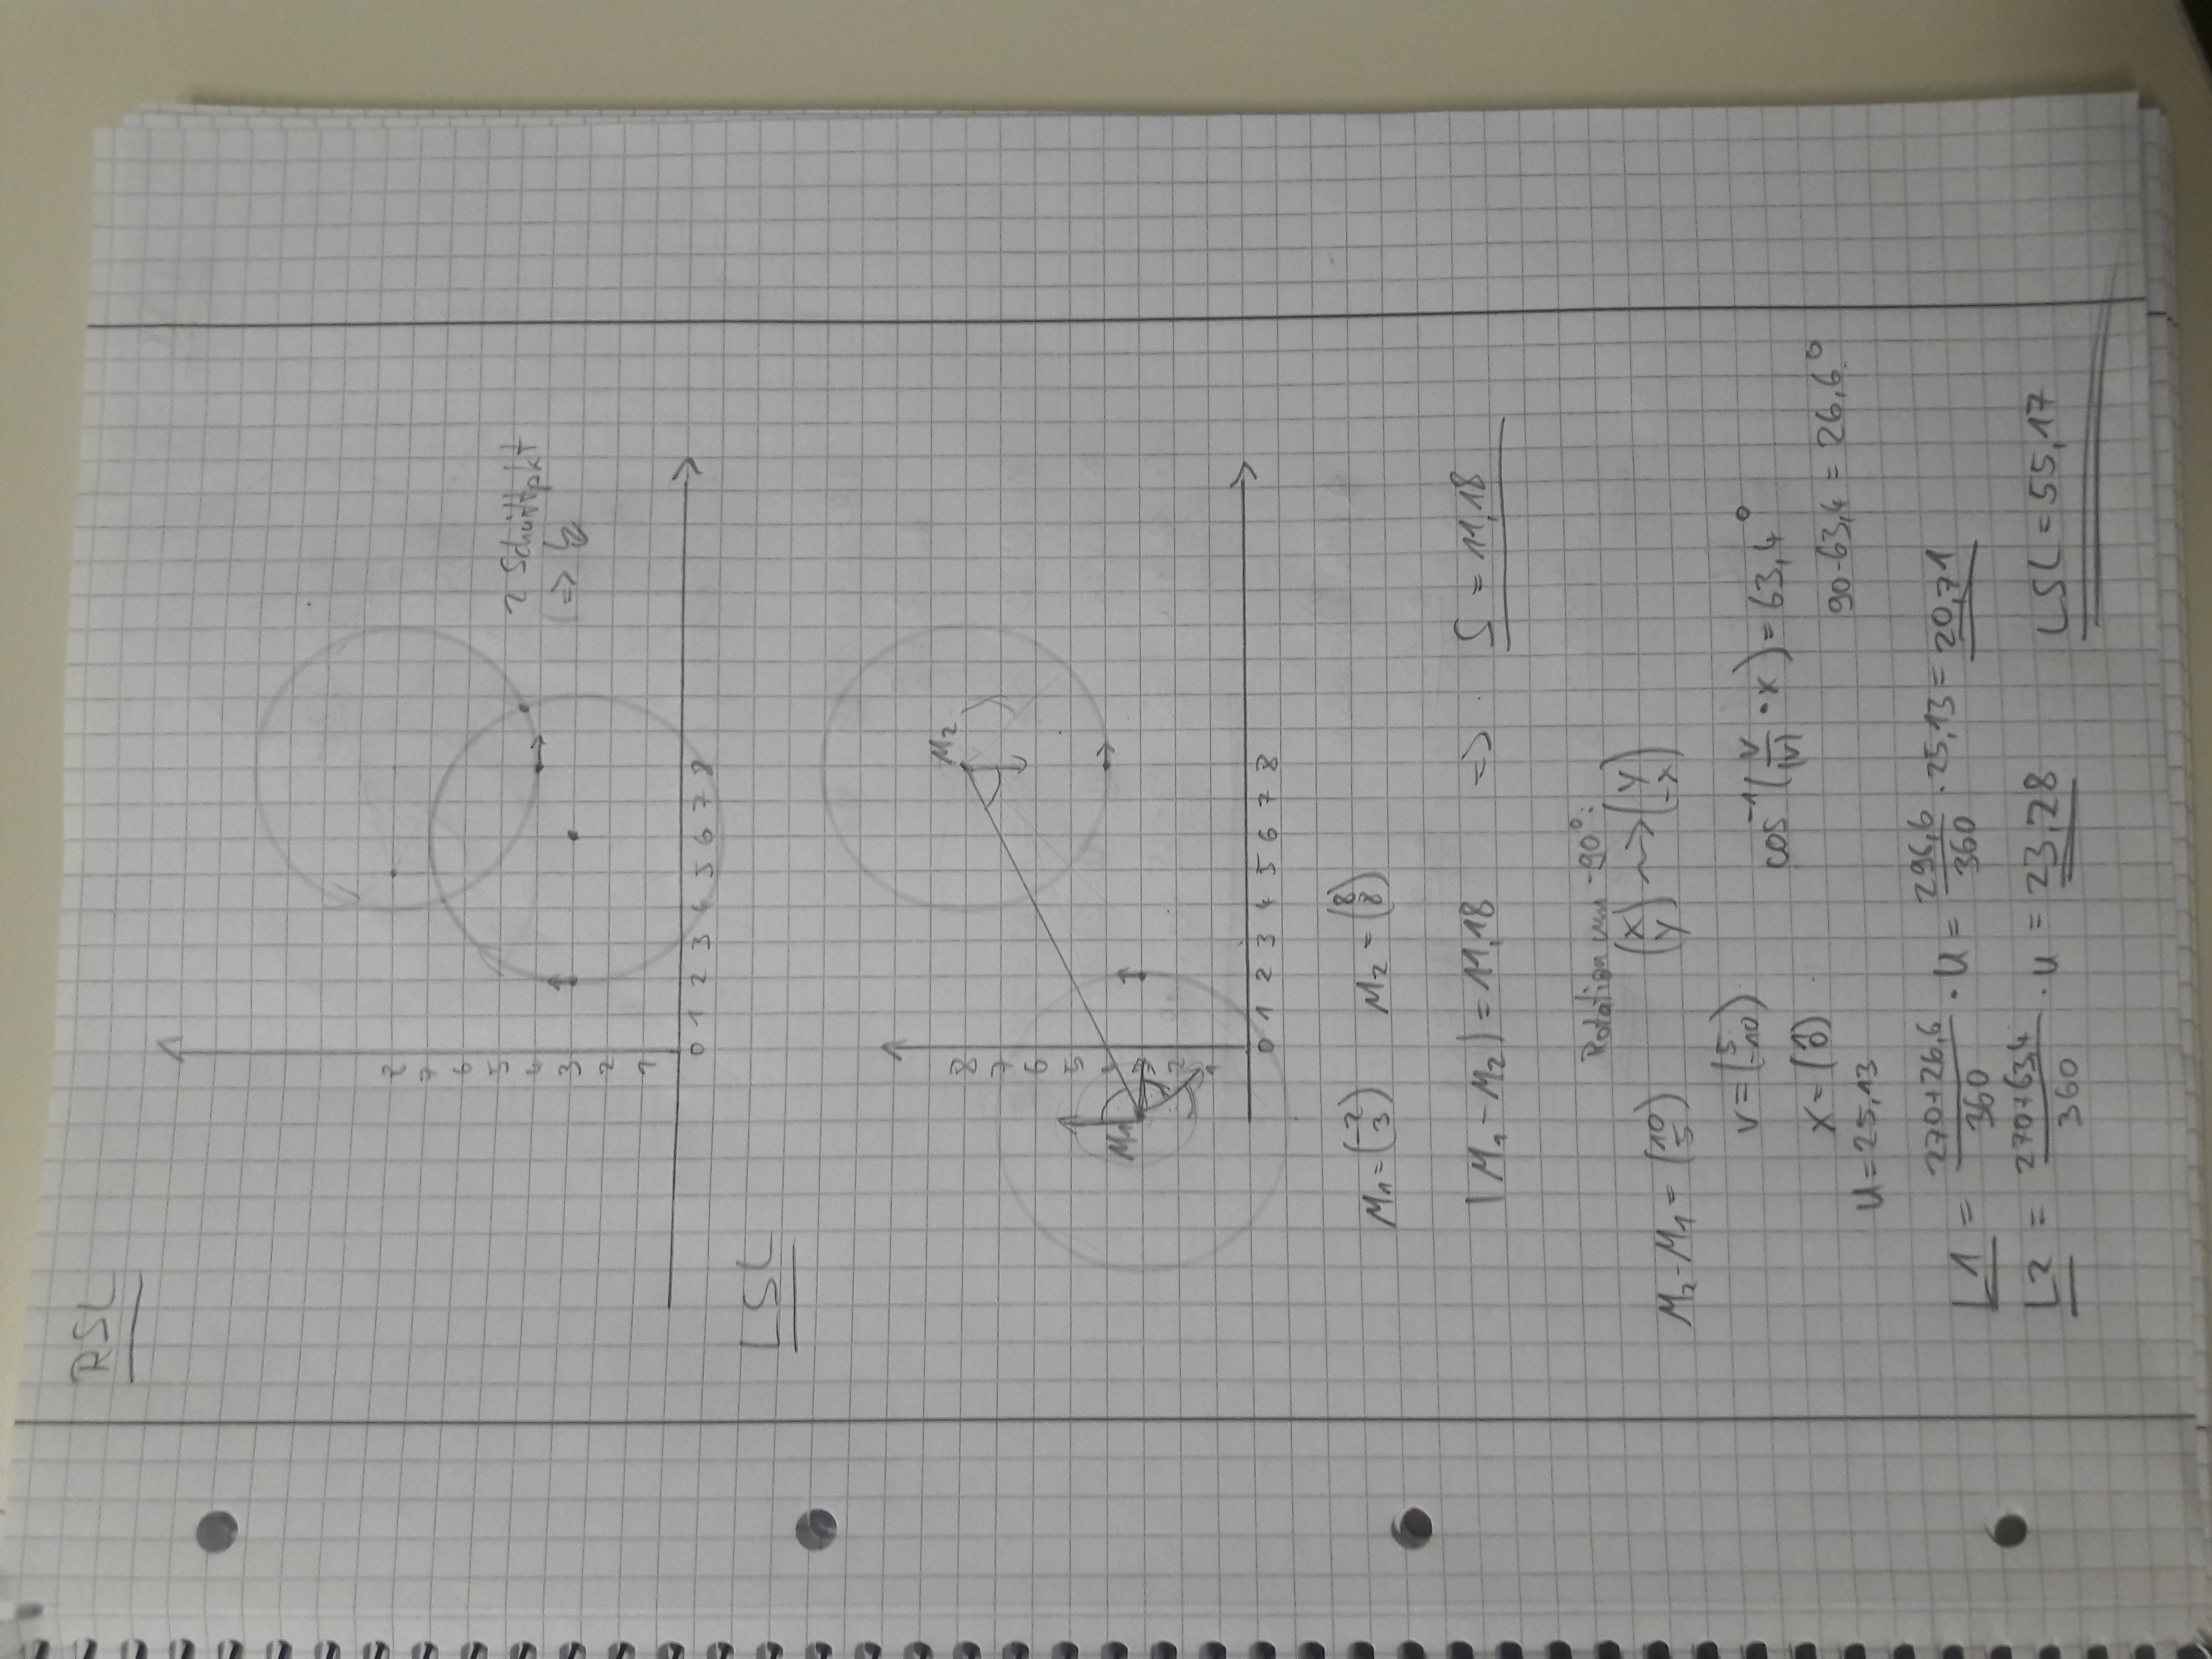 RSL
8
7
6
5
4
3
2
1
0 1 2 3 4 5 6 7 8
2 Schnittpkt
=>
LSL
M2
8
7
6
5
4
3
2
1
M1
0 1 2 3 4 5 6 7 8
M1 = (-2 3) M2 = (8 8)
|M1 - M2| = 11,18 => S = 11,18
Rotation um -90°:
M2 - M1 = (10 5) (x y) ~> (y -x)
v = (5 -10)
x = (1 0) cos⁻¹(v/|v| · x) = 63,4°
u = 25,13 90-63,4 = 26,6°
L1 = 270+26,6/360 · u = 296,6/360 · 25,13 = 20,71
L2 = 270+63,4/360 · u = 23,28 LSL = 55,17